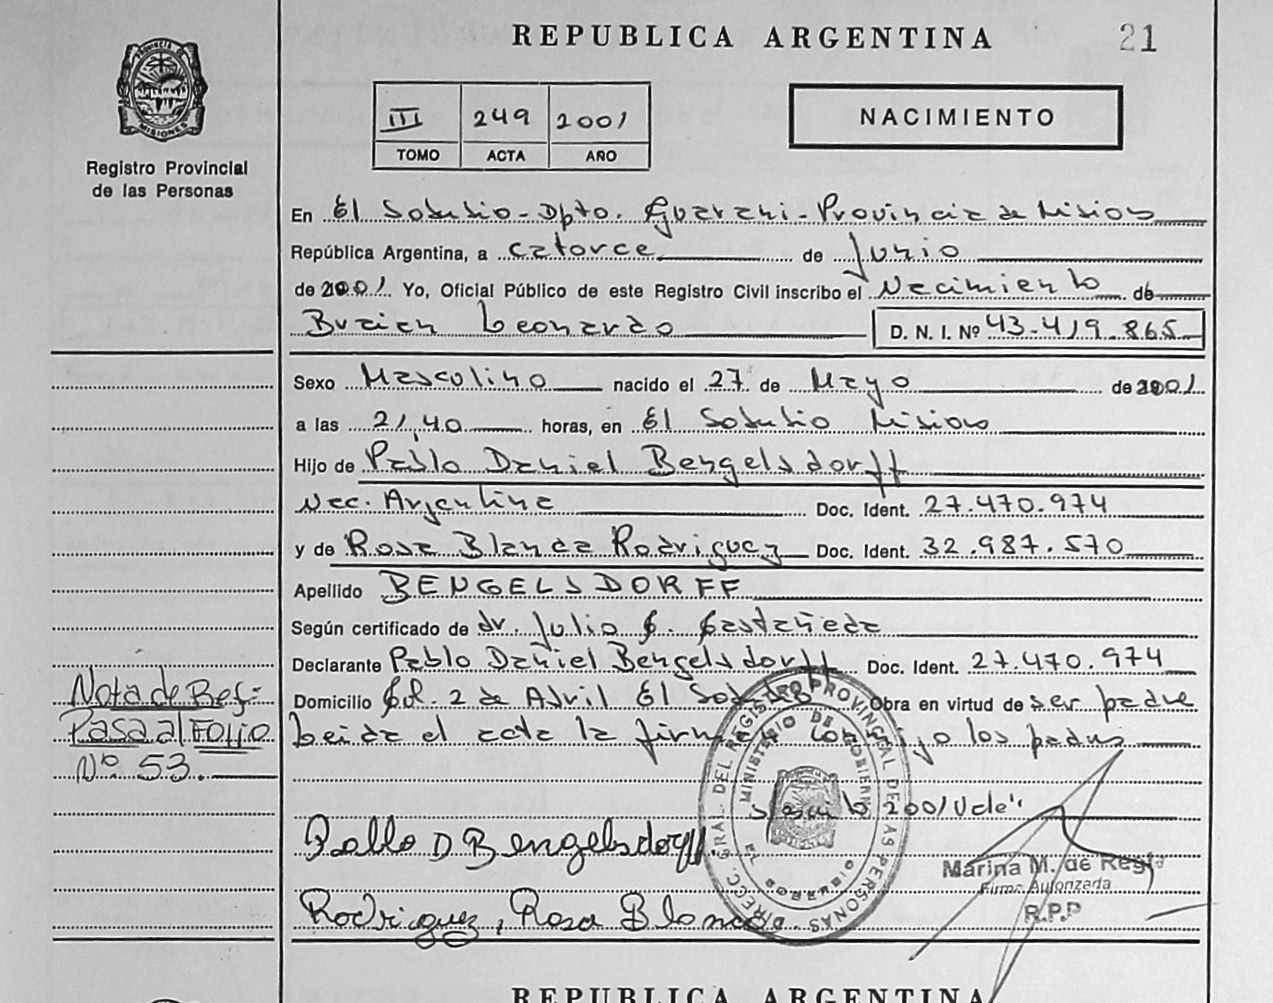 REPUBLICA ARGENTINA
21
PROVINCIA DE MISIONES
Registro Provincial
de las Personas
III 249 2001
TOMO ACTA AÑO
NACIMIENTO
En El Soberbio - Dpto. Guarani - Provincia de Misiones
República Argentina, a catorce de Junio
de 2001 Yo, Oficial Público de este Registro Civil inscribo el Nacimiento de
Brian Leonardo D. N. I. Nº 43.419.865
Sexo Masculino nacido el 27 de Mayo de 2001
a las 21,40 horas, en El Soberbio Misiones
Hijo de Pablo Daniel Bengelsdorff
Nac. Argentina Doc. Ident. 27.470.974
y de Rosa Blanca Rodriguez Doc. Ident. 32.987.570
Apellido BENGELSDORFF
Según certificado de dr. Julio G. Castañeda
Declarante Pablo Daniel Bengelsdorff Doc. Ident. 27.470.974
Domicilio 2 de Abril El Soberbio Obra en virtud de ser padre
Leida el acta la firman conmigo los padres
Nota de Ref:
Pasa al Folio
Nº 53.
2001 Vale"
Pablo D Bengelsdorff.
Rodriguez, Rosa Blanca
DIRECC. GRAL. DEL REGISTRO PROVINCIAL DE LAS PERSONAS
MINISTERIO DE GOBIERNO
EL SOBERBIO
Marina M. de Regis
Firma Autorizada
R.P.P
REPUBLICA ARGENTINA